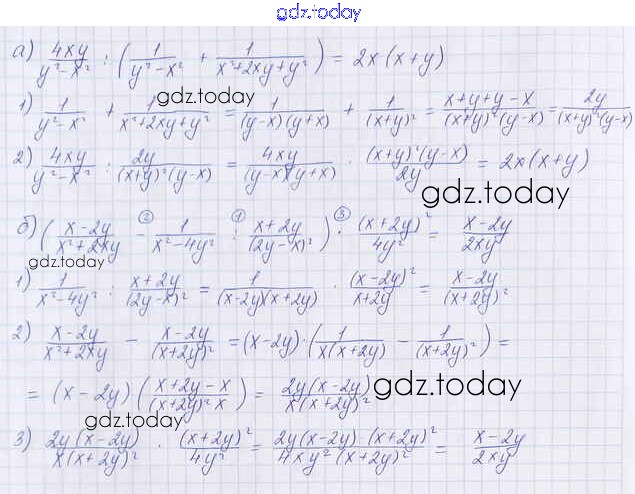 gdz.today
а) 4xy/(y²-x²) : (1/(y²-x²) + 1/(x²+2xy+y²)) = 2x(x+y)
1) 1/(y²-x²) + 1/(x²+2xy+y²) = 1/((y-x)(y+x)) + 1/(x+y)² = (x+y+y-x)/((x+y)²(y-x)) = 2y/((x+y)²(y-x))
gdz.today
2) 4xy/(y²-x²) : 2y/((x+y)²(y-x)) = 4xy/((y-x)(y+x)) · ((x+y)²(y-x))/2y = 2x(x+y)
gdz.today
② ① ③
б) ((x-2y)/(x²+2xy) - 1/(x²-4y²) : (x+2y)/(2y-x)²) · (x+2y)²/4y² = (x-2y)/2xy
gdz.today
1) 1/(x²-4y²) : (x+2y)/(2y-x)² = 1/((x-2y)(x+2y)) · (x-2y)²/(x+2y) = (x-2y)/(x+2y)²
2) (x-2y)/(x²+2xy) - (x-2y)/(x+2y)² = (x-2y)·(1/(x(x+2y)) - 1/(x+2y)²) =
= (x-2y)((x+2y-x)/((x+2y)²x)) = 2y(x-2y)/(x(x+2y)²)
gdz.today
gdz.today
3) 2y(x-2y)/(x(x+2y)²) · (x+2y)²/4y² = (2y(x-2y)(x+2y)²)/(4xy²(x+2y)²) = (x-2y)/2xy